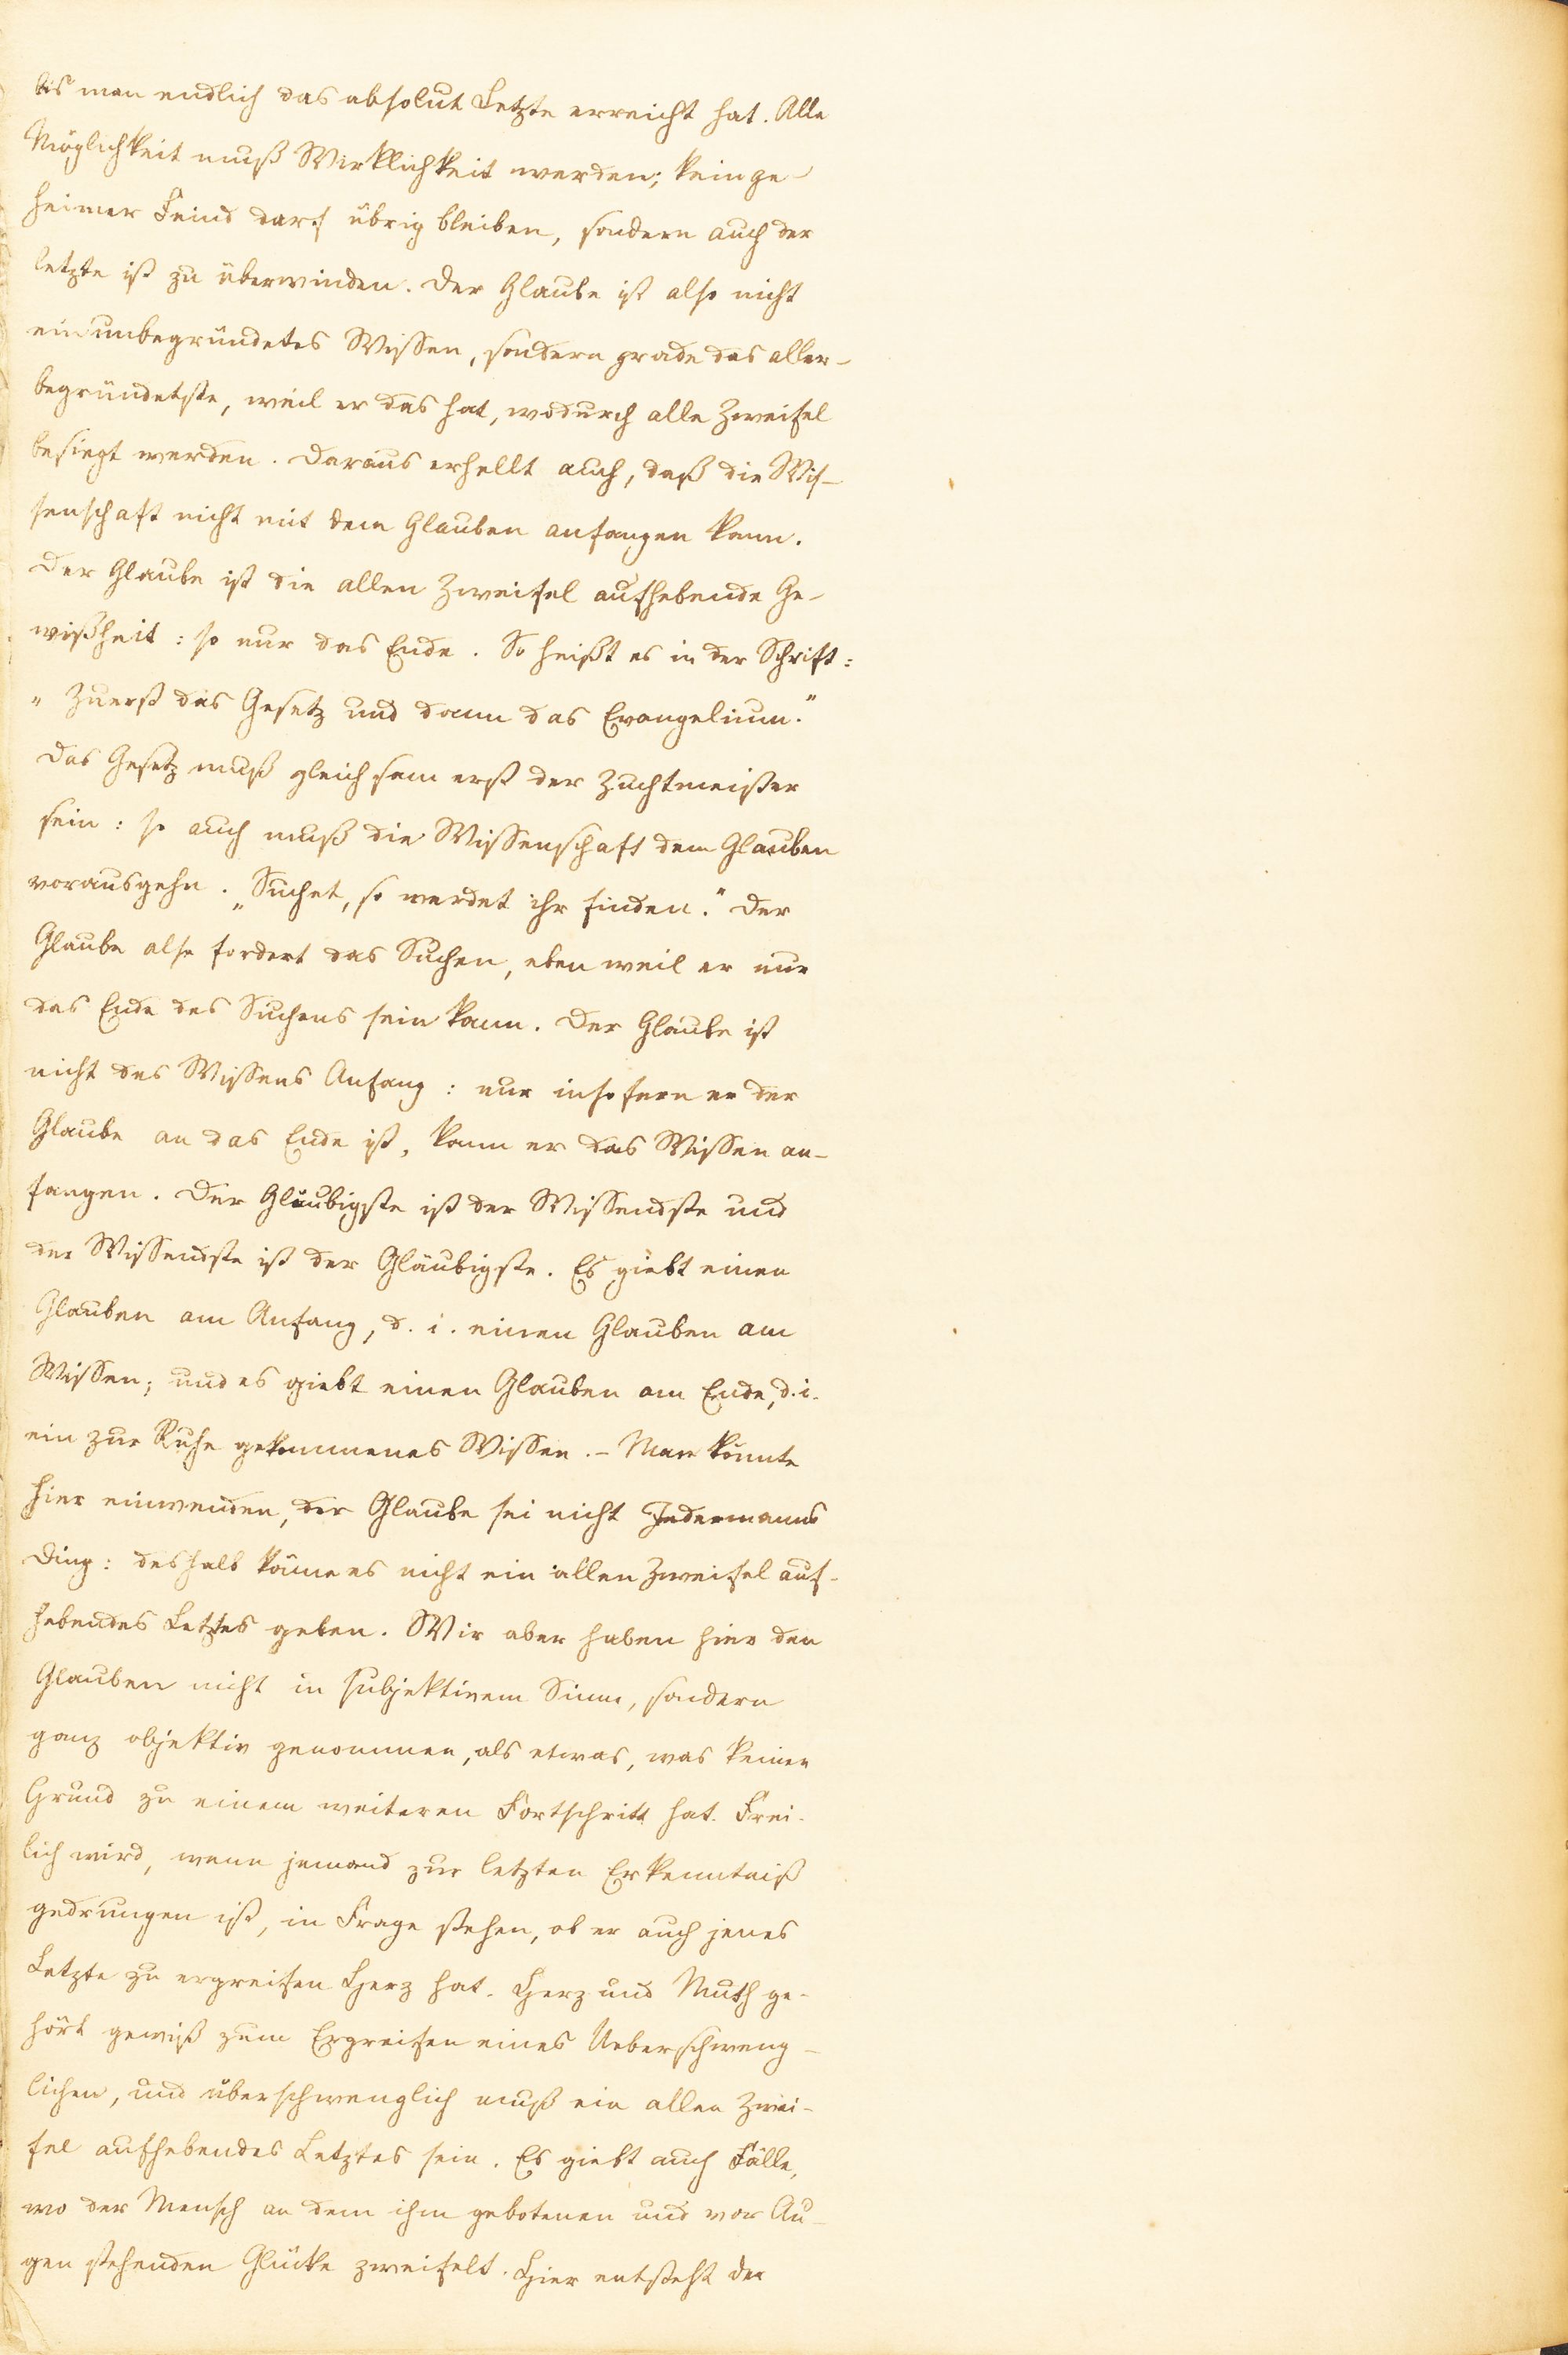 bis man endlich das absolut Letzte erreicht hat. Alle
Möglichkeit muß Wirklichkeit werden; kein ge-
heimer Feind darf übrig bleiben, sondern auch der
letzte ist zu überwinden. Der Glaube ist also nicht
ein unbegründetes Wissen, sondern grade das aller-
begründetste, weil er das hat, wodurch alle Zweifel
besiegt werden. Daraus erhellt auch, daß die Wis-
senschaft nicht mit dem Glauben anfangen kann.
Der Glaube ist die allen Zweifel aufhebende Ge-
wißheit: so nur das Ende. So heißt es in der Schrift:
„Zuerst das Gesetz und dann das Evangelium."
Das Gesetz muß gleichsam erst der Zuchtmeister
sein: so auch muß die Wissenschaft dem Glauben
vorausgehn. „Suchet, so werdet ihr finden." Der
Glaube also fordert das Suchen, eben weil er nur
das Ende des Suchens sein kann. Der Glaube ist
nicht des Wissens Anfang: nur insofern er der
Glaube an das Ende ist, kann er das Wissen an-
fangen. Der Gläubigste ist der Wissendste und
der Wissendste ist der Gläubigste. Es giebt einen
Glauben am Anfang, d. i. einen Glauben am
Wissen; und es giebt einen Glauben am Ende, d. i.
ein zur Ruhe gekommenes Wissen. – Man könnte
hier einwenden, der Glaube sei nicht Jedermanns
Ding: deshalb könne es nicht ein allen Zweifel auf-
hebendes Letztes geben. Wir aber haben hier den
Glauben nicht in subjektivem Sinne, sondern
ganz objektiv genommen, als etwas, was keinen
Grund zu einem weiteren Fortschritt hat. Frei-
lich wird, wenn jemand zur letzten Erkenntniß
gedrungen ist, in Frage stehen, ob er auch jenes
Letzte zu ergreifen Herz hat. Herz und Muth ge-
hört gewiß zum Ergreifen eines Ueberschweng-
lichen, und überschwenglich muß ein allen Zwei-
fel aufhebendes Letztes sein. Es giebt auch Fälle,
wo der Mensch an dem ihm gebotenen und vor Au-
gen stehenden Glücke zweifelt. Hier entsteht der